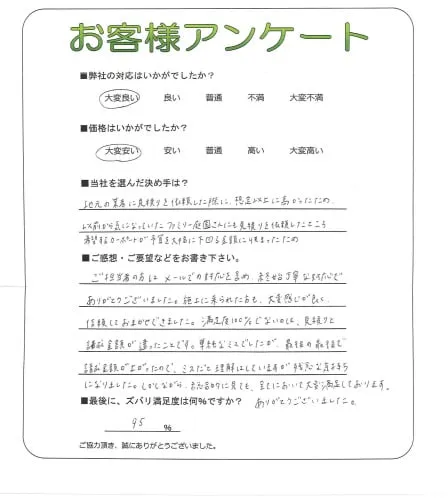 お客様アンケート
■弊社の対応はいかがでしたか？
大変良い 良い 普通 不満 大変不満
■価格はいかがでしたか？
大変安い 安い 普通 高い 大変高い
■当社を選んだ決め手は？
地元の業者に見積りを依頼した際に、想定以上に高かったため、
以前から気になっていたファミリー庭園さんにも見積りを依頼したところ
希望するカーポートが予算を大幅に下回る金額に収まったため
■ご感想・ご要望などをお書き下さい。
ご担当者の方は メールでの対応も含め、終始丁寧な対応で
ありがとうございました。施工に来られた方も、大変感じが良く、
信頼しておまかせできました。満足度100%でないのは、見積りと
請求金額が違ったことです。単純なミスでしたが、最後の最後で
請求金額が上がったので、ミスだと理解はしていますが 残念な気持ち
になりました。しかしながら、総合的に見ても、全てにおいて大変満足しております。
■最後に、ズバリ満足度は何％ですか？ ありがとうございました。
95 ％
ご協力頂き、誠にありがとうございました。